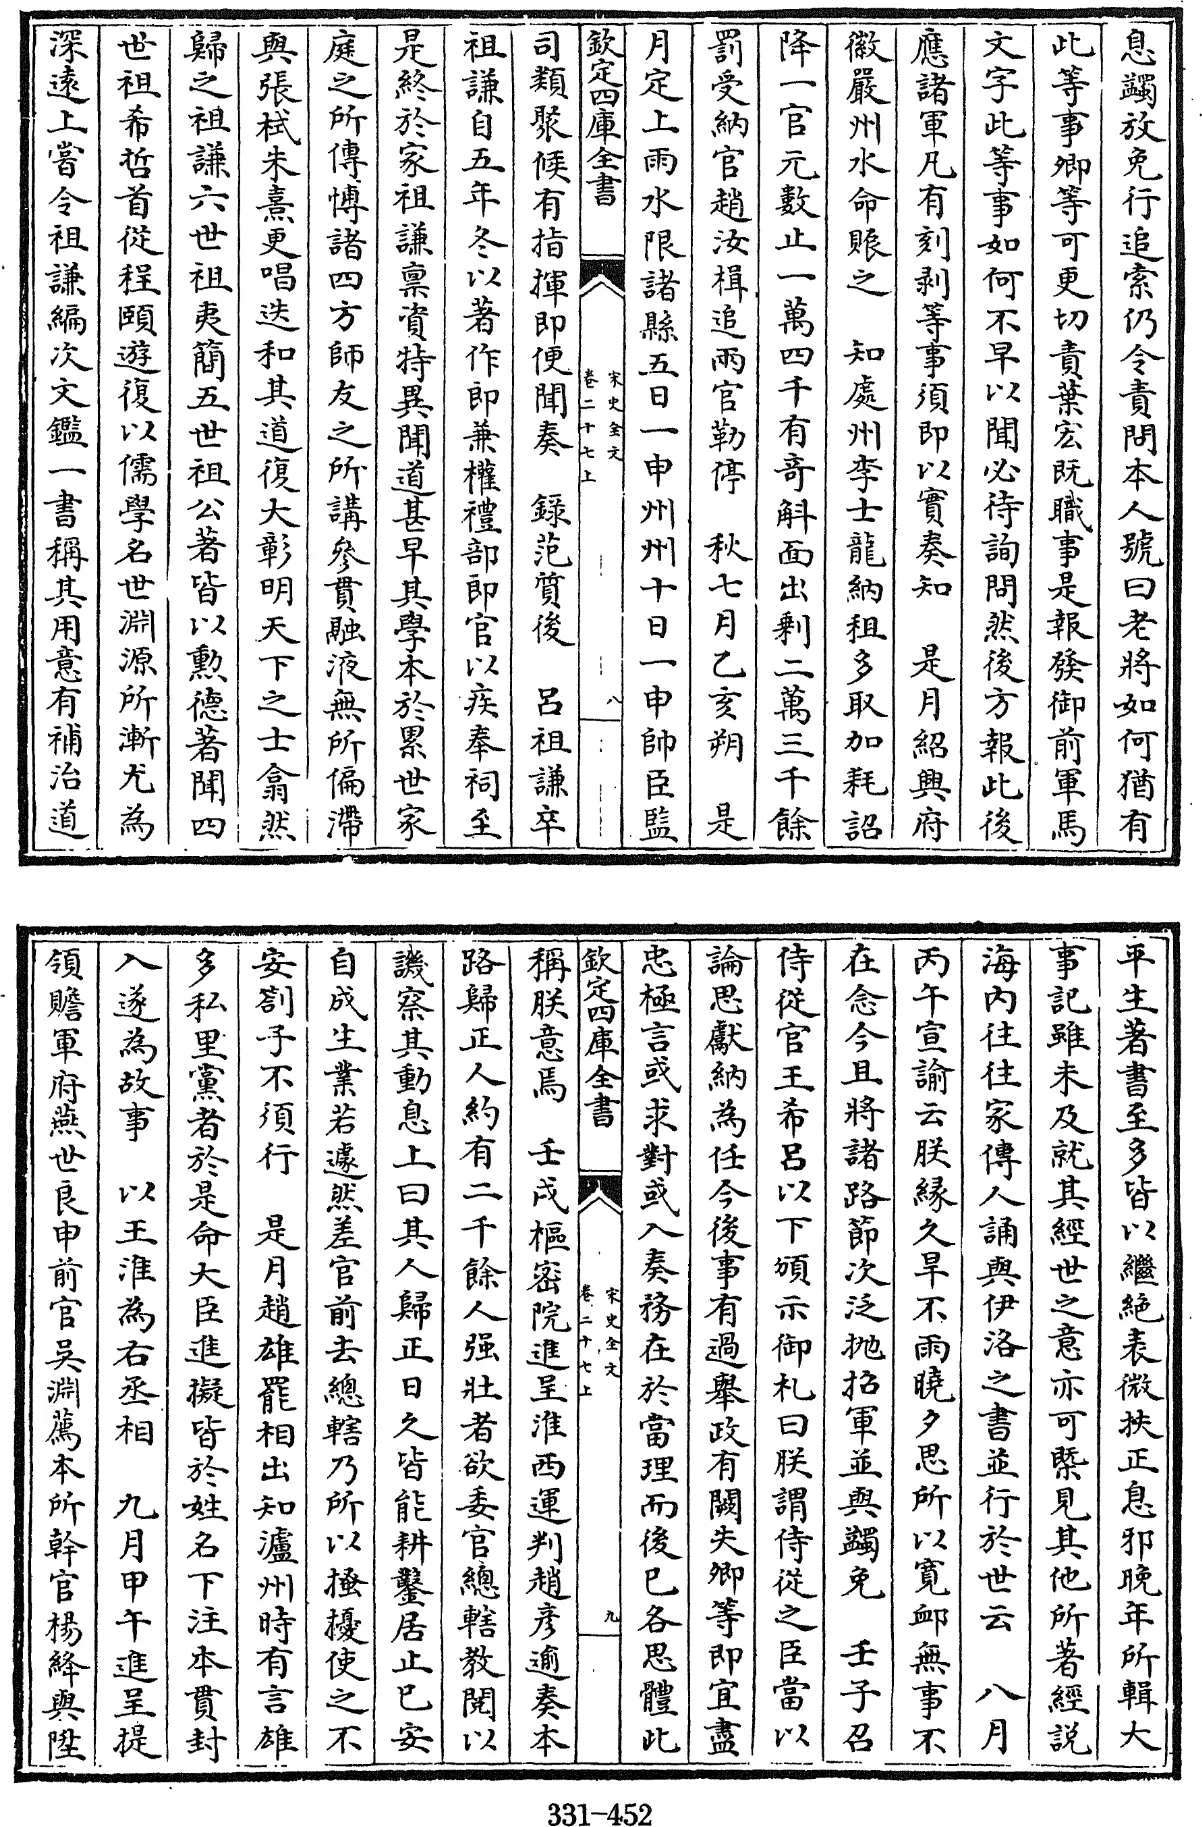 息蠲放免行追索仍令責問本人號曰老將如何猶有
此等事卿等可更切責葉宏既職事是報發御前軍馬
文字此等事如何不早以聞必待詢問然後方報此後
應諸軍凡有刻剥等事須即以實奏知　是月紹興府
徽嚴州水命賑之　知處州李士龍納租多取加耗詔
降一官元數止一萬四千有奇斛面出剩二萬三千餘
罰受納官趙汝楫追兩官勒停　秋七月乙亥朔　是
月定上雨水限諸縣五日一申州州十日一申帥臣監
欽定四庫全書
宋史全文
卷二十七上
八
司類聚候有指揮即便聞奏　錄范質後　呂祖謙卒
祖謙自五年冬以著作郎兼權禮部郎官以疾奉祠至
是終於家祖謙稟資特異聞道甚早其學本於累世家
庭之所傳博諸四方師友之所講參貫融液無所偏滯
與張栻朱熹更唱迭和其道復大彰明天下之士翕然
歸之祖謙六世祖夷簡五世祖公著皆以勲德著聞四
世祖希哲首從程頤遊復以儒學名世淵源所漸尤為
深遠上嘗令祖謙編次文鑑一書稱其用意有補治道
平生著書至多皆以繼絶表微扶正息邪晚年所輯大
事記雖未及就其經世之意亦可槩見其他所著經說
海内往往家傳人誦與伊洛之書並行於世云　八月
丙午宣諭云朕縁久旱不雨曉夕思所以寛卹無事不
在念今且將諸路節次泛抛招軍並與蠲免　壬子召
侍從官王希呂以下頒示御札曰朕謂侍從之臣當以
論思獻納為任今後事有過舉政有闕失卿等即宜盡
忠極言或求對或入奏務在於當理而後已各思體此
欽定四庫全書
宋史全文
卷二十七上
九
稱朕意焉　壬戌樞密院進呈淮西運判趙彥逾奏本
路歸正人約有二千餘人强壯者欲委官總轄教閱以
譏察其動息上曰其人歸正日久皆能耕鑿居止已安
自成生業若遽然差官前去總轄乃所以搔擾使之不
安劄子不須行　是月趙雄罷相出知瀘州時有言雄
多私里黨者於是命大臣進擬皆於姓名下注本貫封
入遂為故事　以王淮為右丞相　九月甲午進呈提
領贍軍府燕世良申前官吳淵薦本所幹官楊絳與陞
331-452